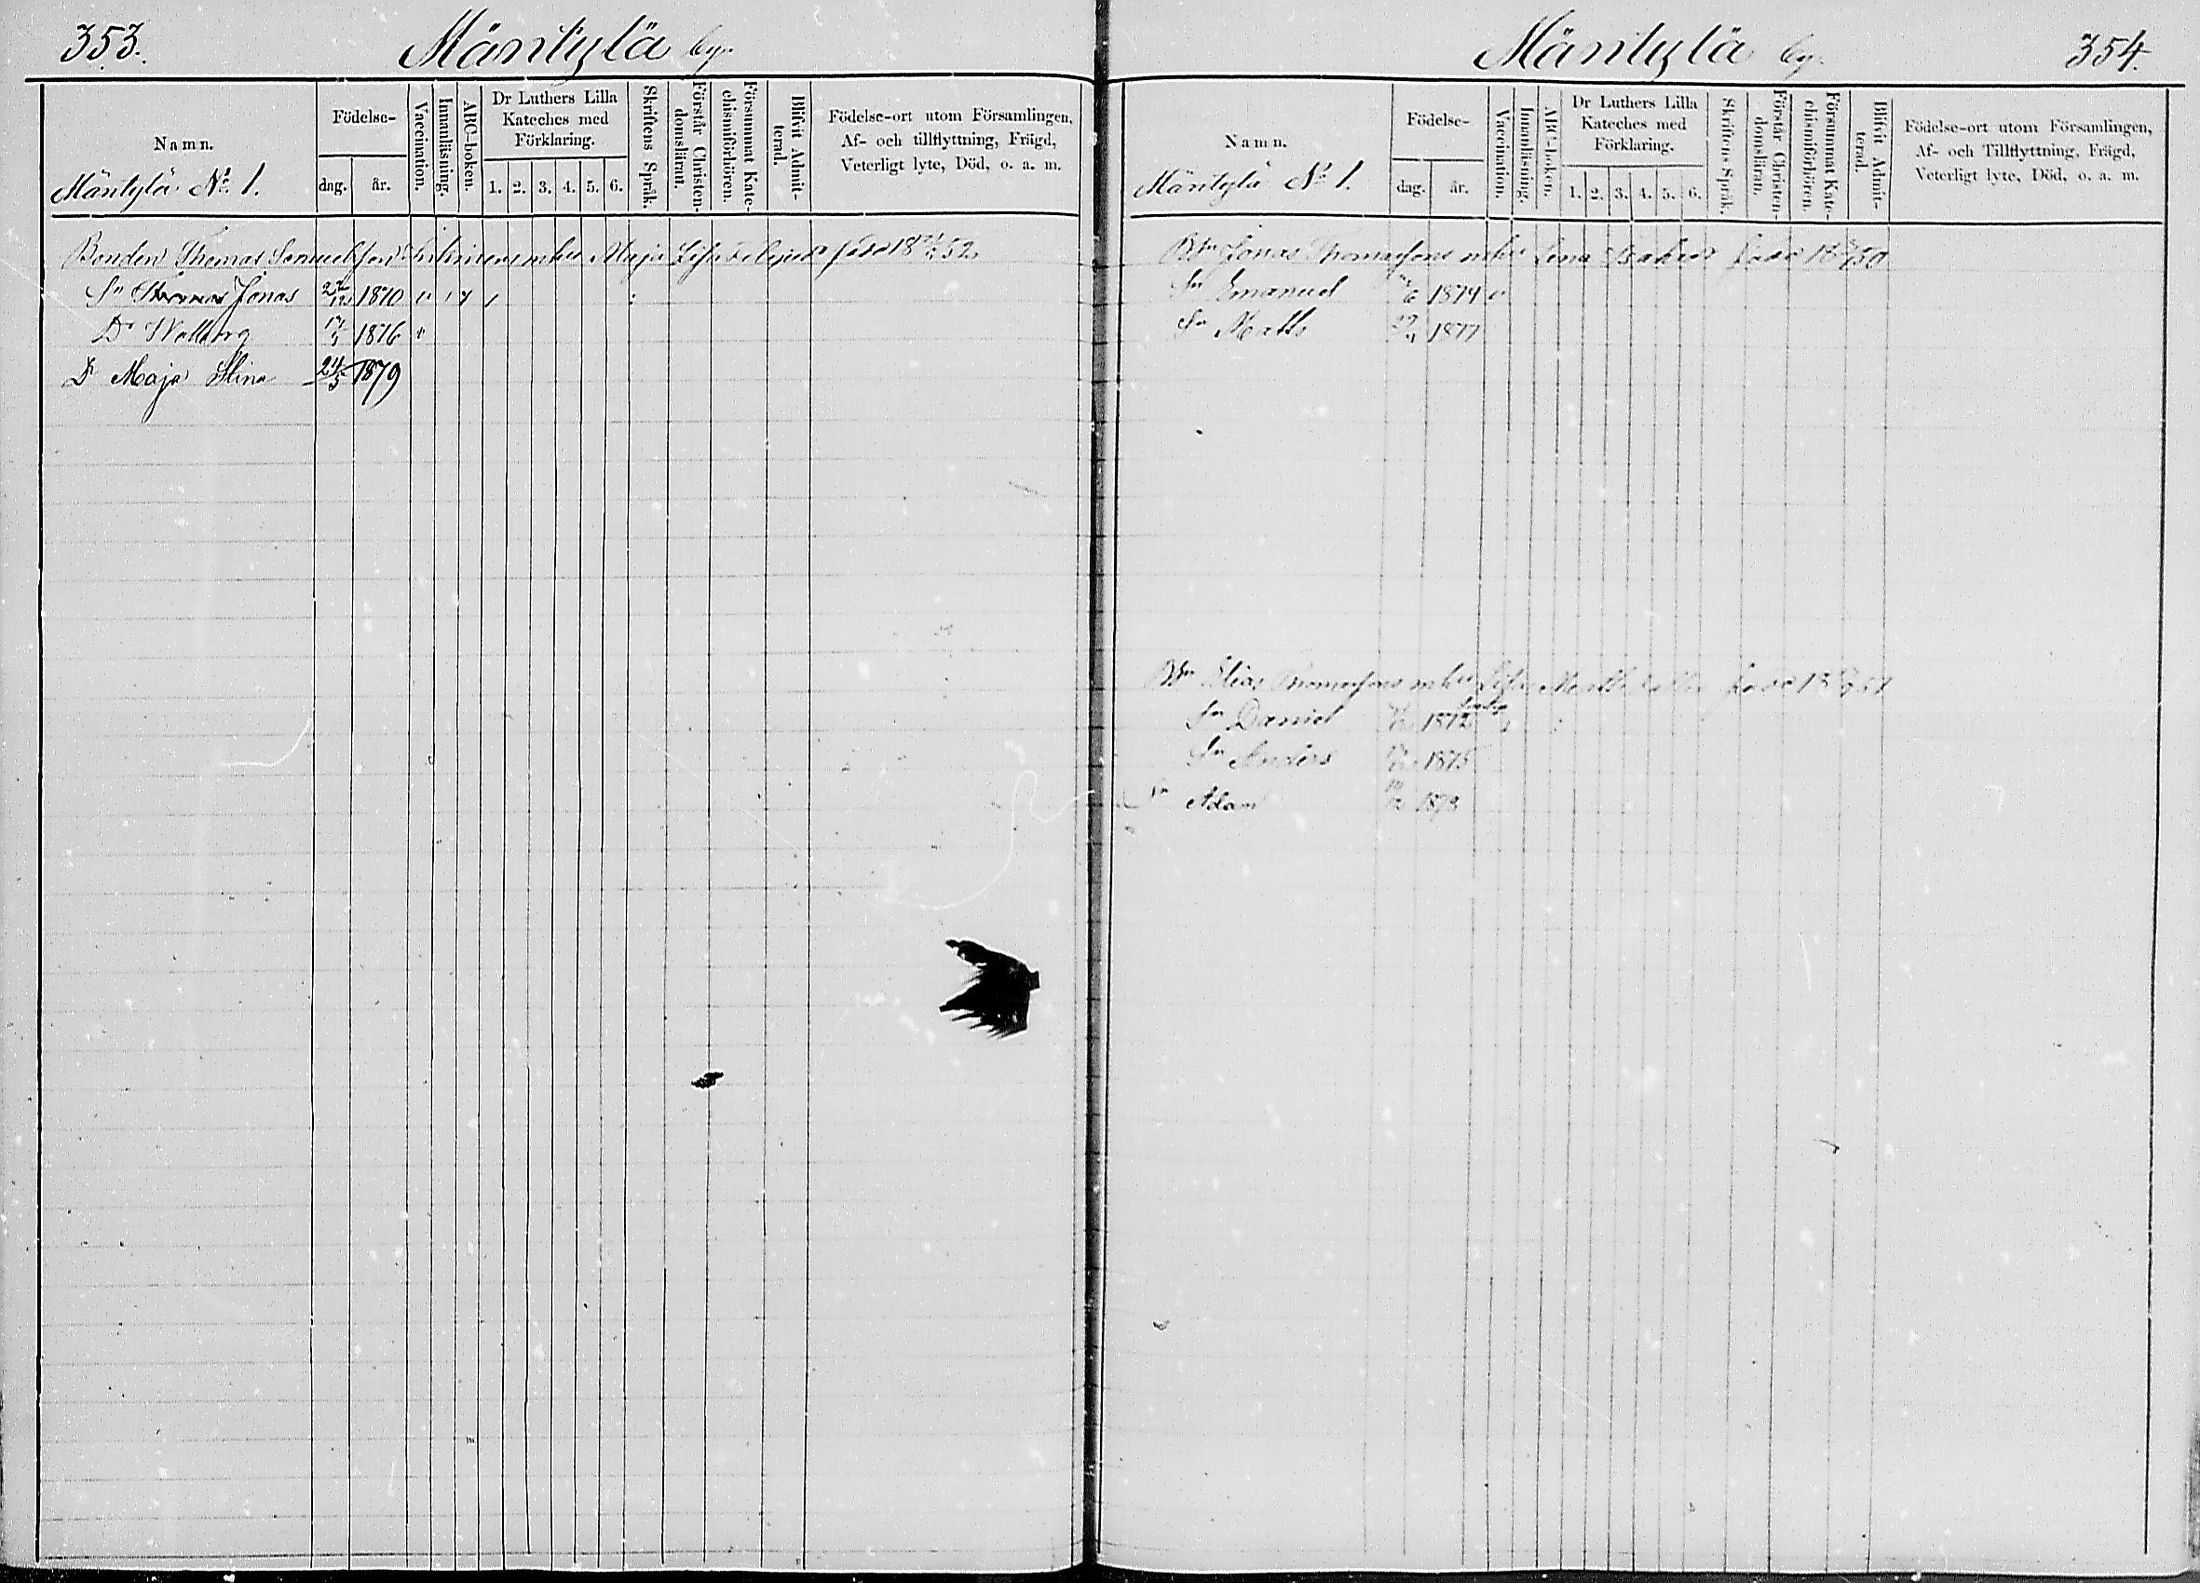 353. Mäntylä by.
Namn.
Mäntylä No. 1.
Födelse-
dag. år.
Vaccination.
Innanläsning.
ABC-boken.
Dr Luthers Lilla
Kateches med
Förklaring.
1. 2. 3. 4. 5. 6.
Skriftens Språk.
Förstår Christen-
domsläran.
Försummat Kate-
chismiförhören.
Blifvit Admit-
terad.
Födelse-ort utom Församlingen,
Af- och tillflyttning, Frägd,
Veterligt lyte, Död, o. a. m.
Bonden Thomas Samuelsson Maja Lisa
Sn Thomas Jonas 1870
Dr Walborg 1876
Dr Maja Stina 1879
Mäntylä by. 354.
Namn.
Mäntylä No. 1.
Födelse-
dag. år.
Vaccination.
Innanläsning.
ABC-boken.
Dr Luthers Lilla
Kateches med
Förklaring.
1. 2. 3. 4. 5. 6.
Skriftens Språk.
Förstår Christen-
domsläran.
Försummat Kate-
chismiförhören.
Blifvit Admit-
terad.
Födelse-ort utom Församlingen,
Af- och Tillflyttning, Frägd,
Veterligt lyte, Död, o. a. m.
Bsn Jonas Thomasson Lena
Sn Emanuel 1874
Sn Matts 1877
Bsn Elias Thomasson Lisa
Sn Daniel 1872
Sn Anders 1875
Sn Adam 1878